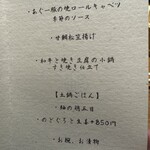 ・あぐー豚の焼ロールキャベツ
季節のソース
・甘鯛松笠揚げ
・和牛と焼き豆腐の小鍋
すき焼き仕立て
【土鍋ごはん】
・鮭の焼
・のどぐろと生姜+850円
・お椀、お漬物